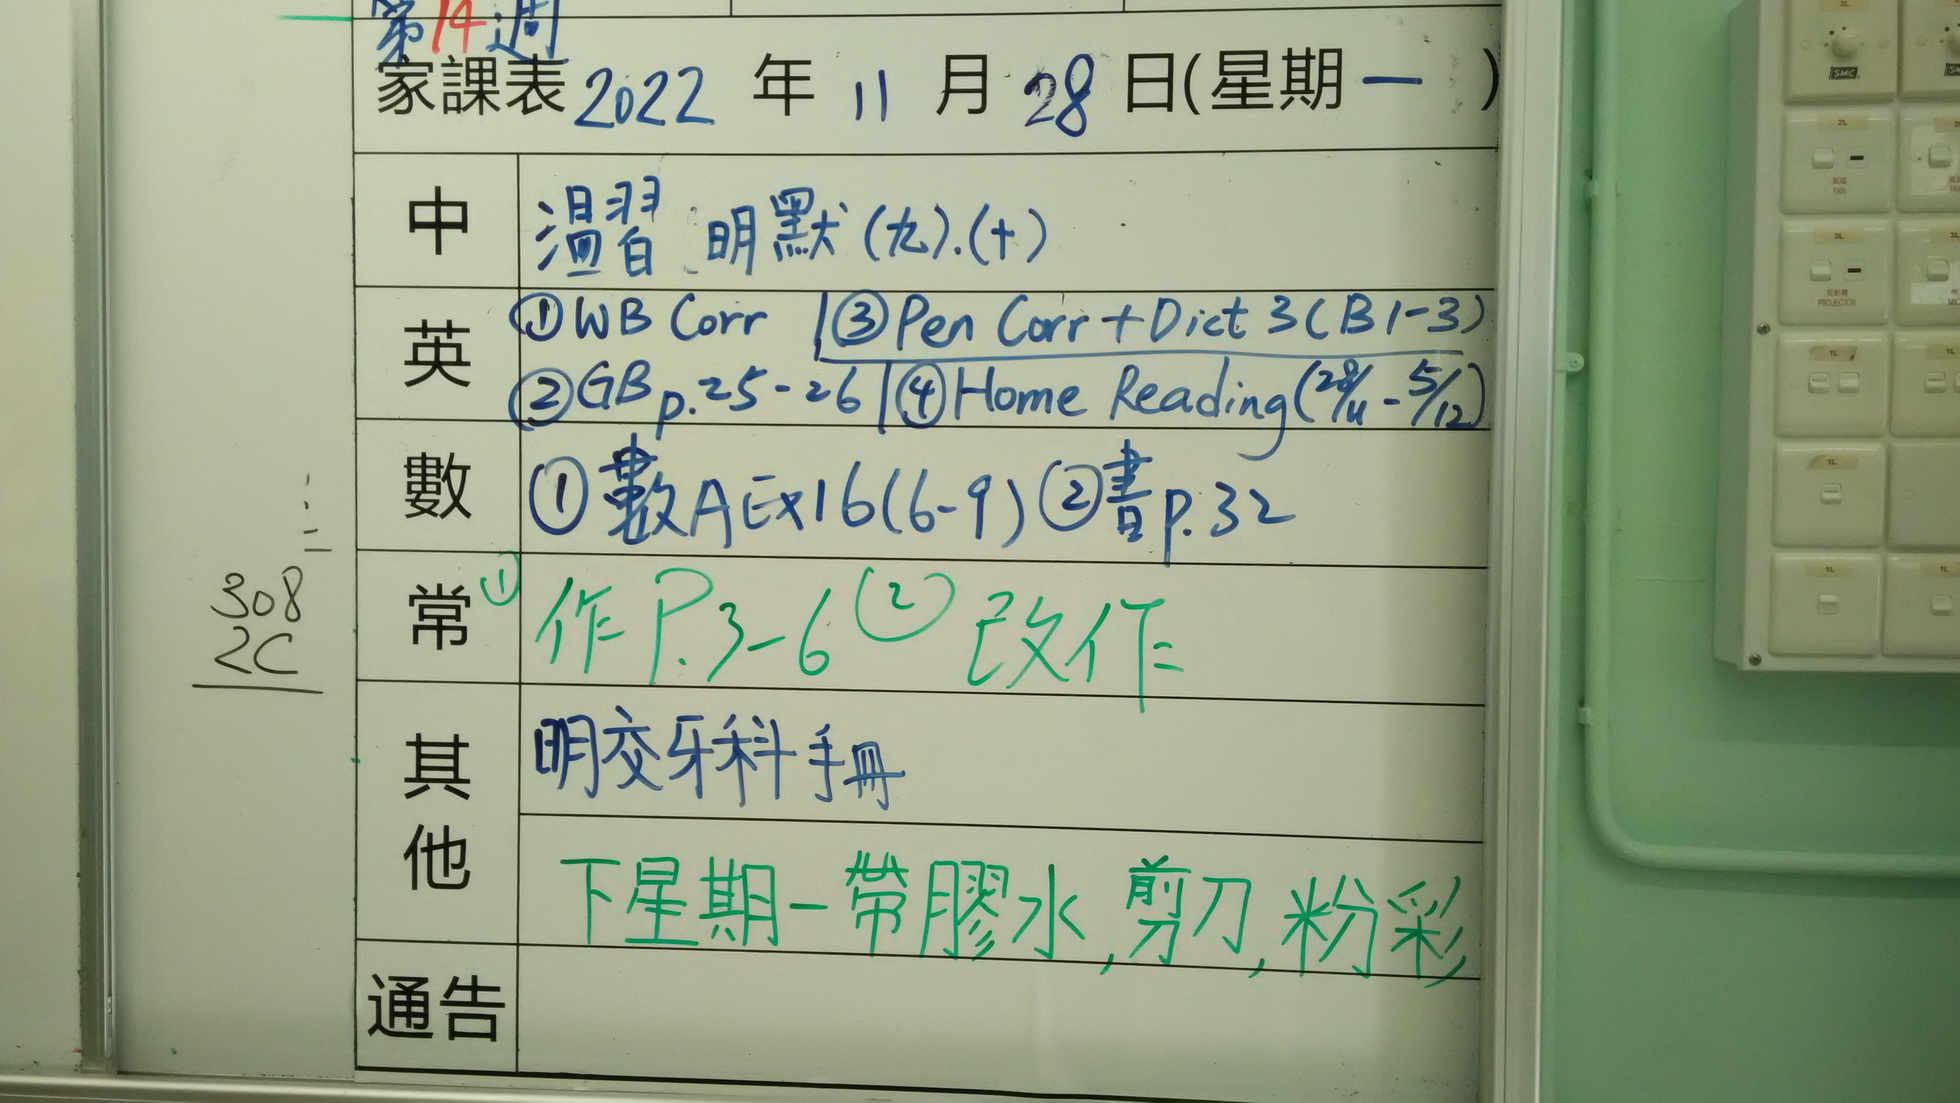 第14週
家課表 2022 年 11 月 28 日(星期一 )
中 溫習 明默(九).(十)
英 ①WB Corr ③Pen Corr+Dict 3(B1-3)
②GB p.25-26 ④Home Reading(28/11-5/12)
數 ①數A Ex16(6-9) ②書p.32
常 ①作P.3-6 ②改作
308
2C
其他 明交牙科手冊
下星期一帶膠水,剪刀,粉彩
通告
SMC
2L
FAN
3L
PROJECTOR
1L
1L
1L
1L